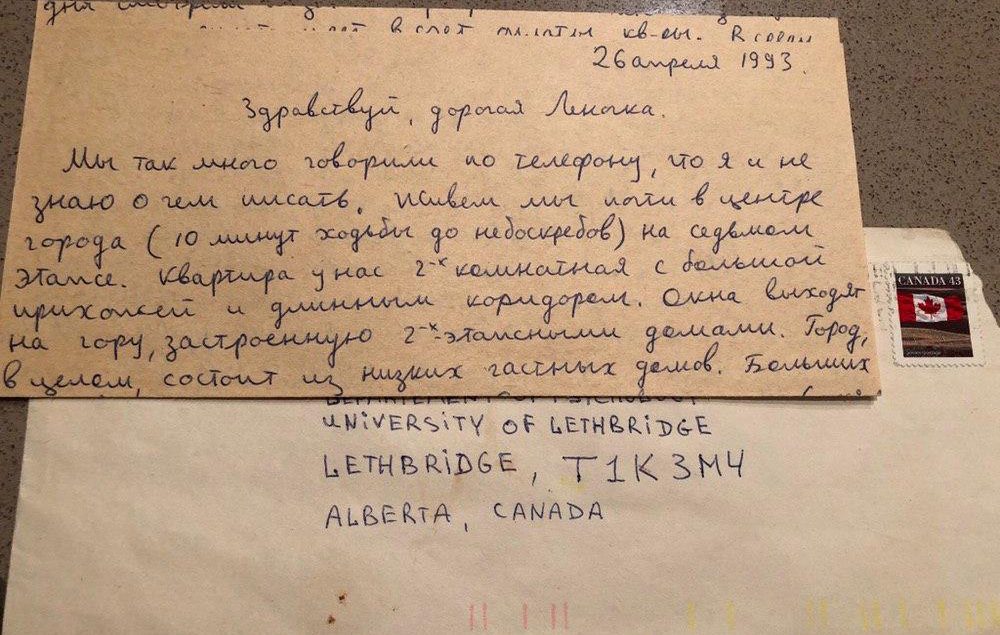 дня смотрели
в счёт оплаты кв-ры. В
26 апреля 1993.
Здравствуй, дорогая Леночка.
Мы так много говорили по телефону, что я и не
знаю о чем писать. Живем мы почти в центре
города (10 минут ходьбы до небоскребов) на седьмом
этаже. Квартира у нас 2-х комнатная с большой
прихожей и длинным коридором. Окна выходят
на гору, застроенную 2-х-этажными домами. Город,
в целом, состоит из низких частных домов. Больших
CANADA 43
DEPARTEMENT OF PSYCHOLOGY
UNIVERSITY OF LETHBRIDGE
LETHBRIDGE, T1K 3M4
ALBERTA, CANADA